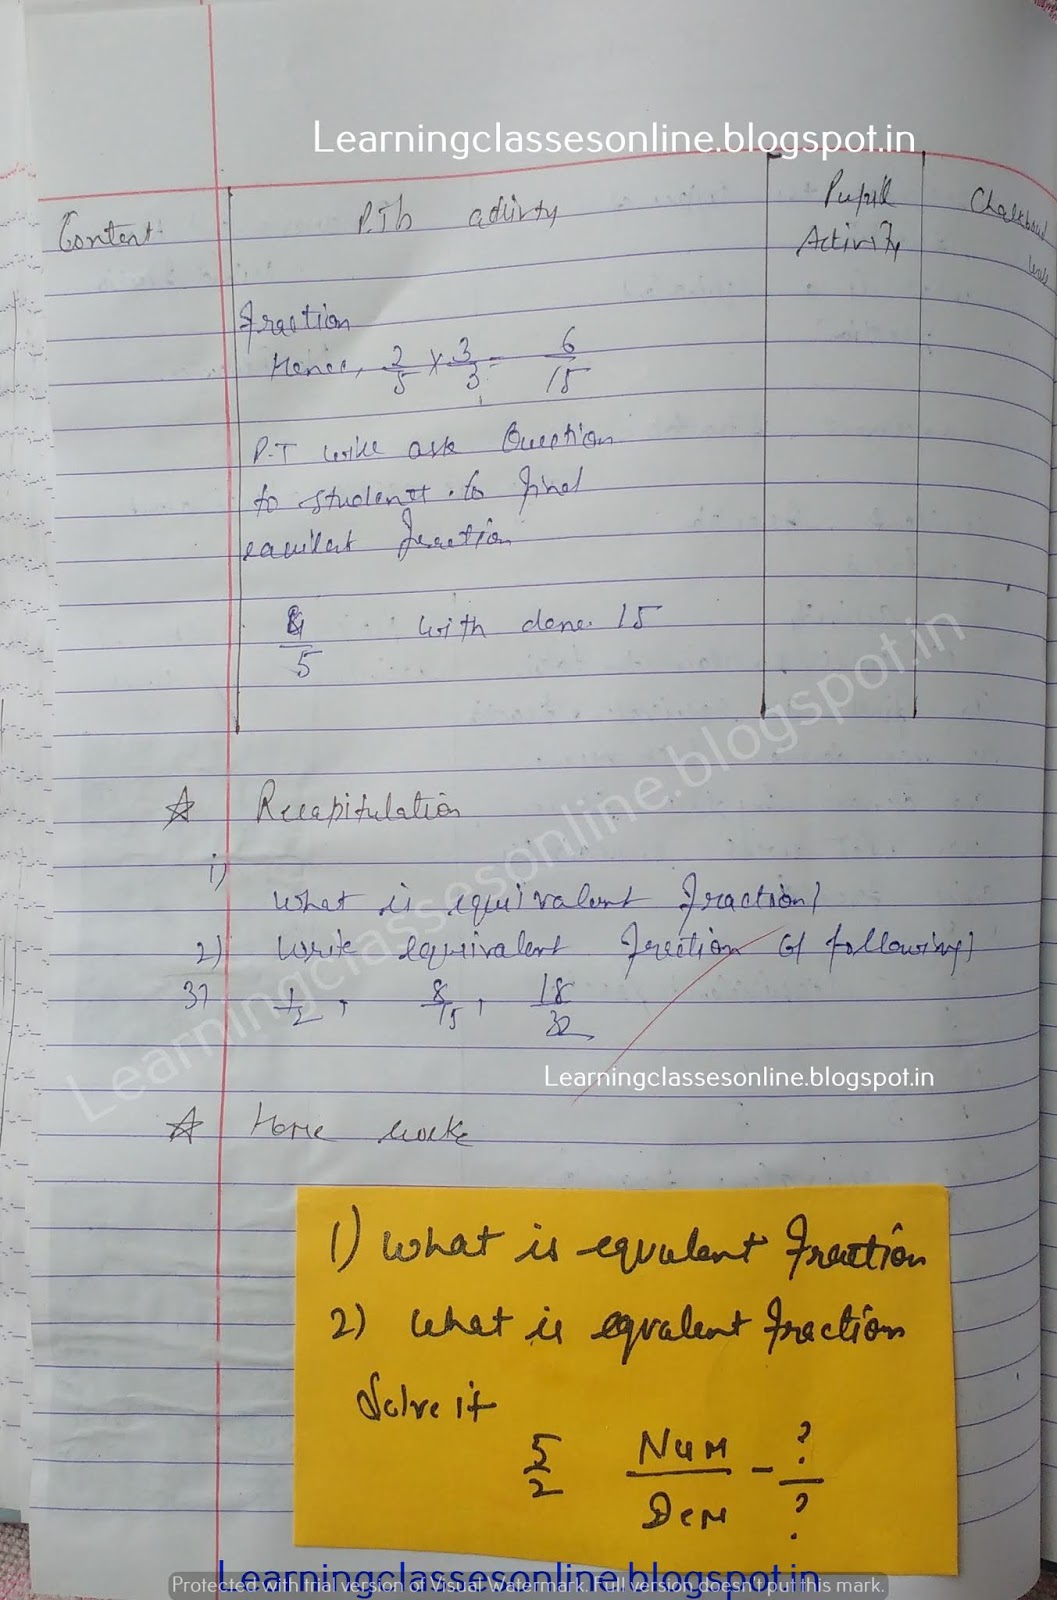 Learningclassesonline.blogspot.in
Content P.T's activity Pupil Activity Chalkboard
fraction
Hence, 2/5 × 3/3 = 6/15
P.T will ask Question
to students to find
equilent fraction
/5 with done. 15
☆ Recapitulation
1)
What is equivalent fraction?
2) Write equivalent fraction of following?
3) 1/2, 8/15, 18/32
Learningclassesonline.blogspot.in
Learningclassesonline.blogspot.in
☆ Home work
1) What is equvalent fraction
2) What is eqvalent fraction
Solve it
5/2 Num/Dem - ?/?
Learningclassesonline.blogspot.in
Protected with trial version of Visual Watermark. Full version doesn't put this mark.